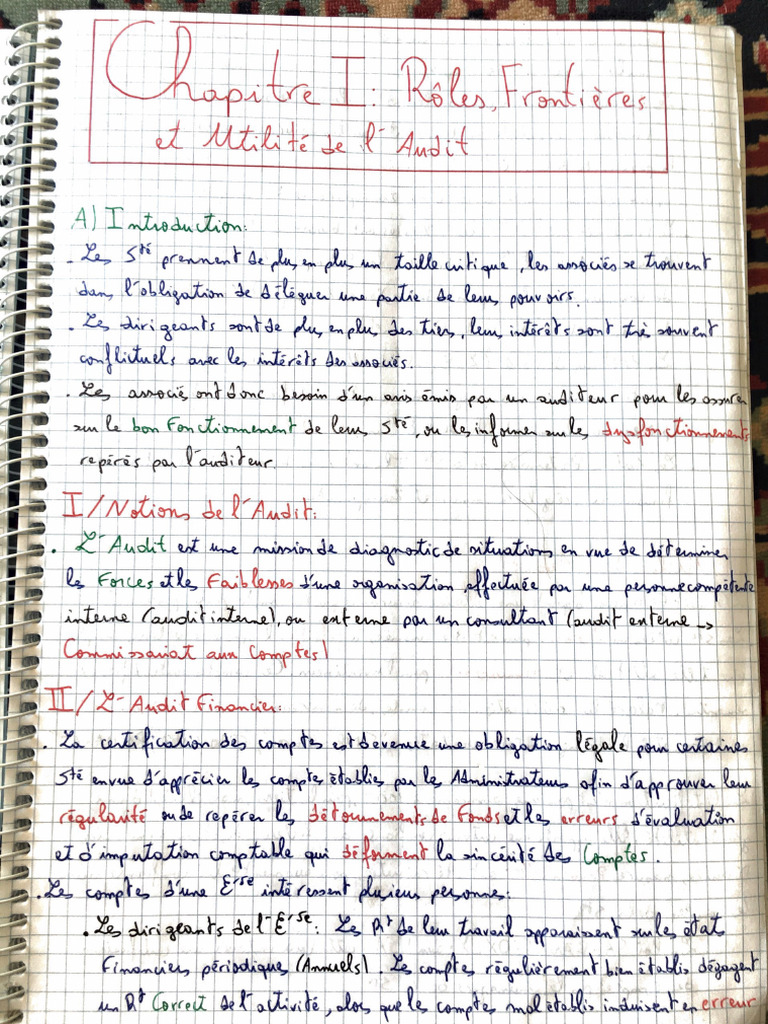 Chapitre I: Rôles, Frontières
et Utilité de l'Audit
A) Introduction:
- Les Sté prennent de plus en plus un taille critique, les associés se trouvent
dans l'obligation de déléguer une partie de leurs pouvoirs.
- Les dirigeants sont de plus en plus des tiers, leurs intérêts sont très souvent
conflictuels avec les intérêts des associés.
- Les associés ont donc besoin d'un avis émis par un auditeur pour les assurer
sur le bon Fonctionnement de leurs Sté, ou les informer sur les dysfonctionnements
repérés par l'auditeur.
I/Notions de l'Audit:
. L'Audit est une mission de diagnostic de situations en vue de déterminer
les Forces et les Faiblesses d'une organisation, effectuée par une personne compétente
interne (audit interne), ou externe par un consultant (audit externe →
Commissariat aux Comptes)
II/L'Audit Financier:
. La certification des comptes est devenue une obligation légale pour certaines
Sté en vue d'apprécier les comptes établis par les Administrateurs afin d'approuver leur
régularité ou de repérer les détournements de Fonds et les erreurs d'évaluation
et d'imputation comptable qui déforment la sincérité des Comptes.
. Les comptes d'une Erse intéressent plusieurs personnes:
. Les dirigeants de l'Erse: Les Rt de leur travail apparaissent sur les état
Financiers périodiques (Annuels). Les comptes régulièrement bien établis dégagent
un Rt Correct de l'activité, alors que les comptes mal établis induisent en erreur